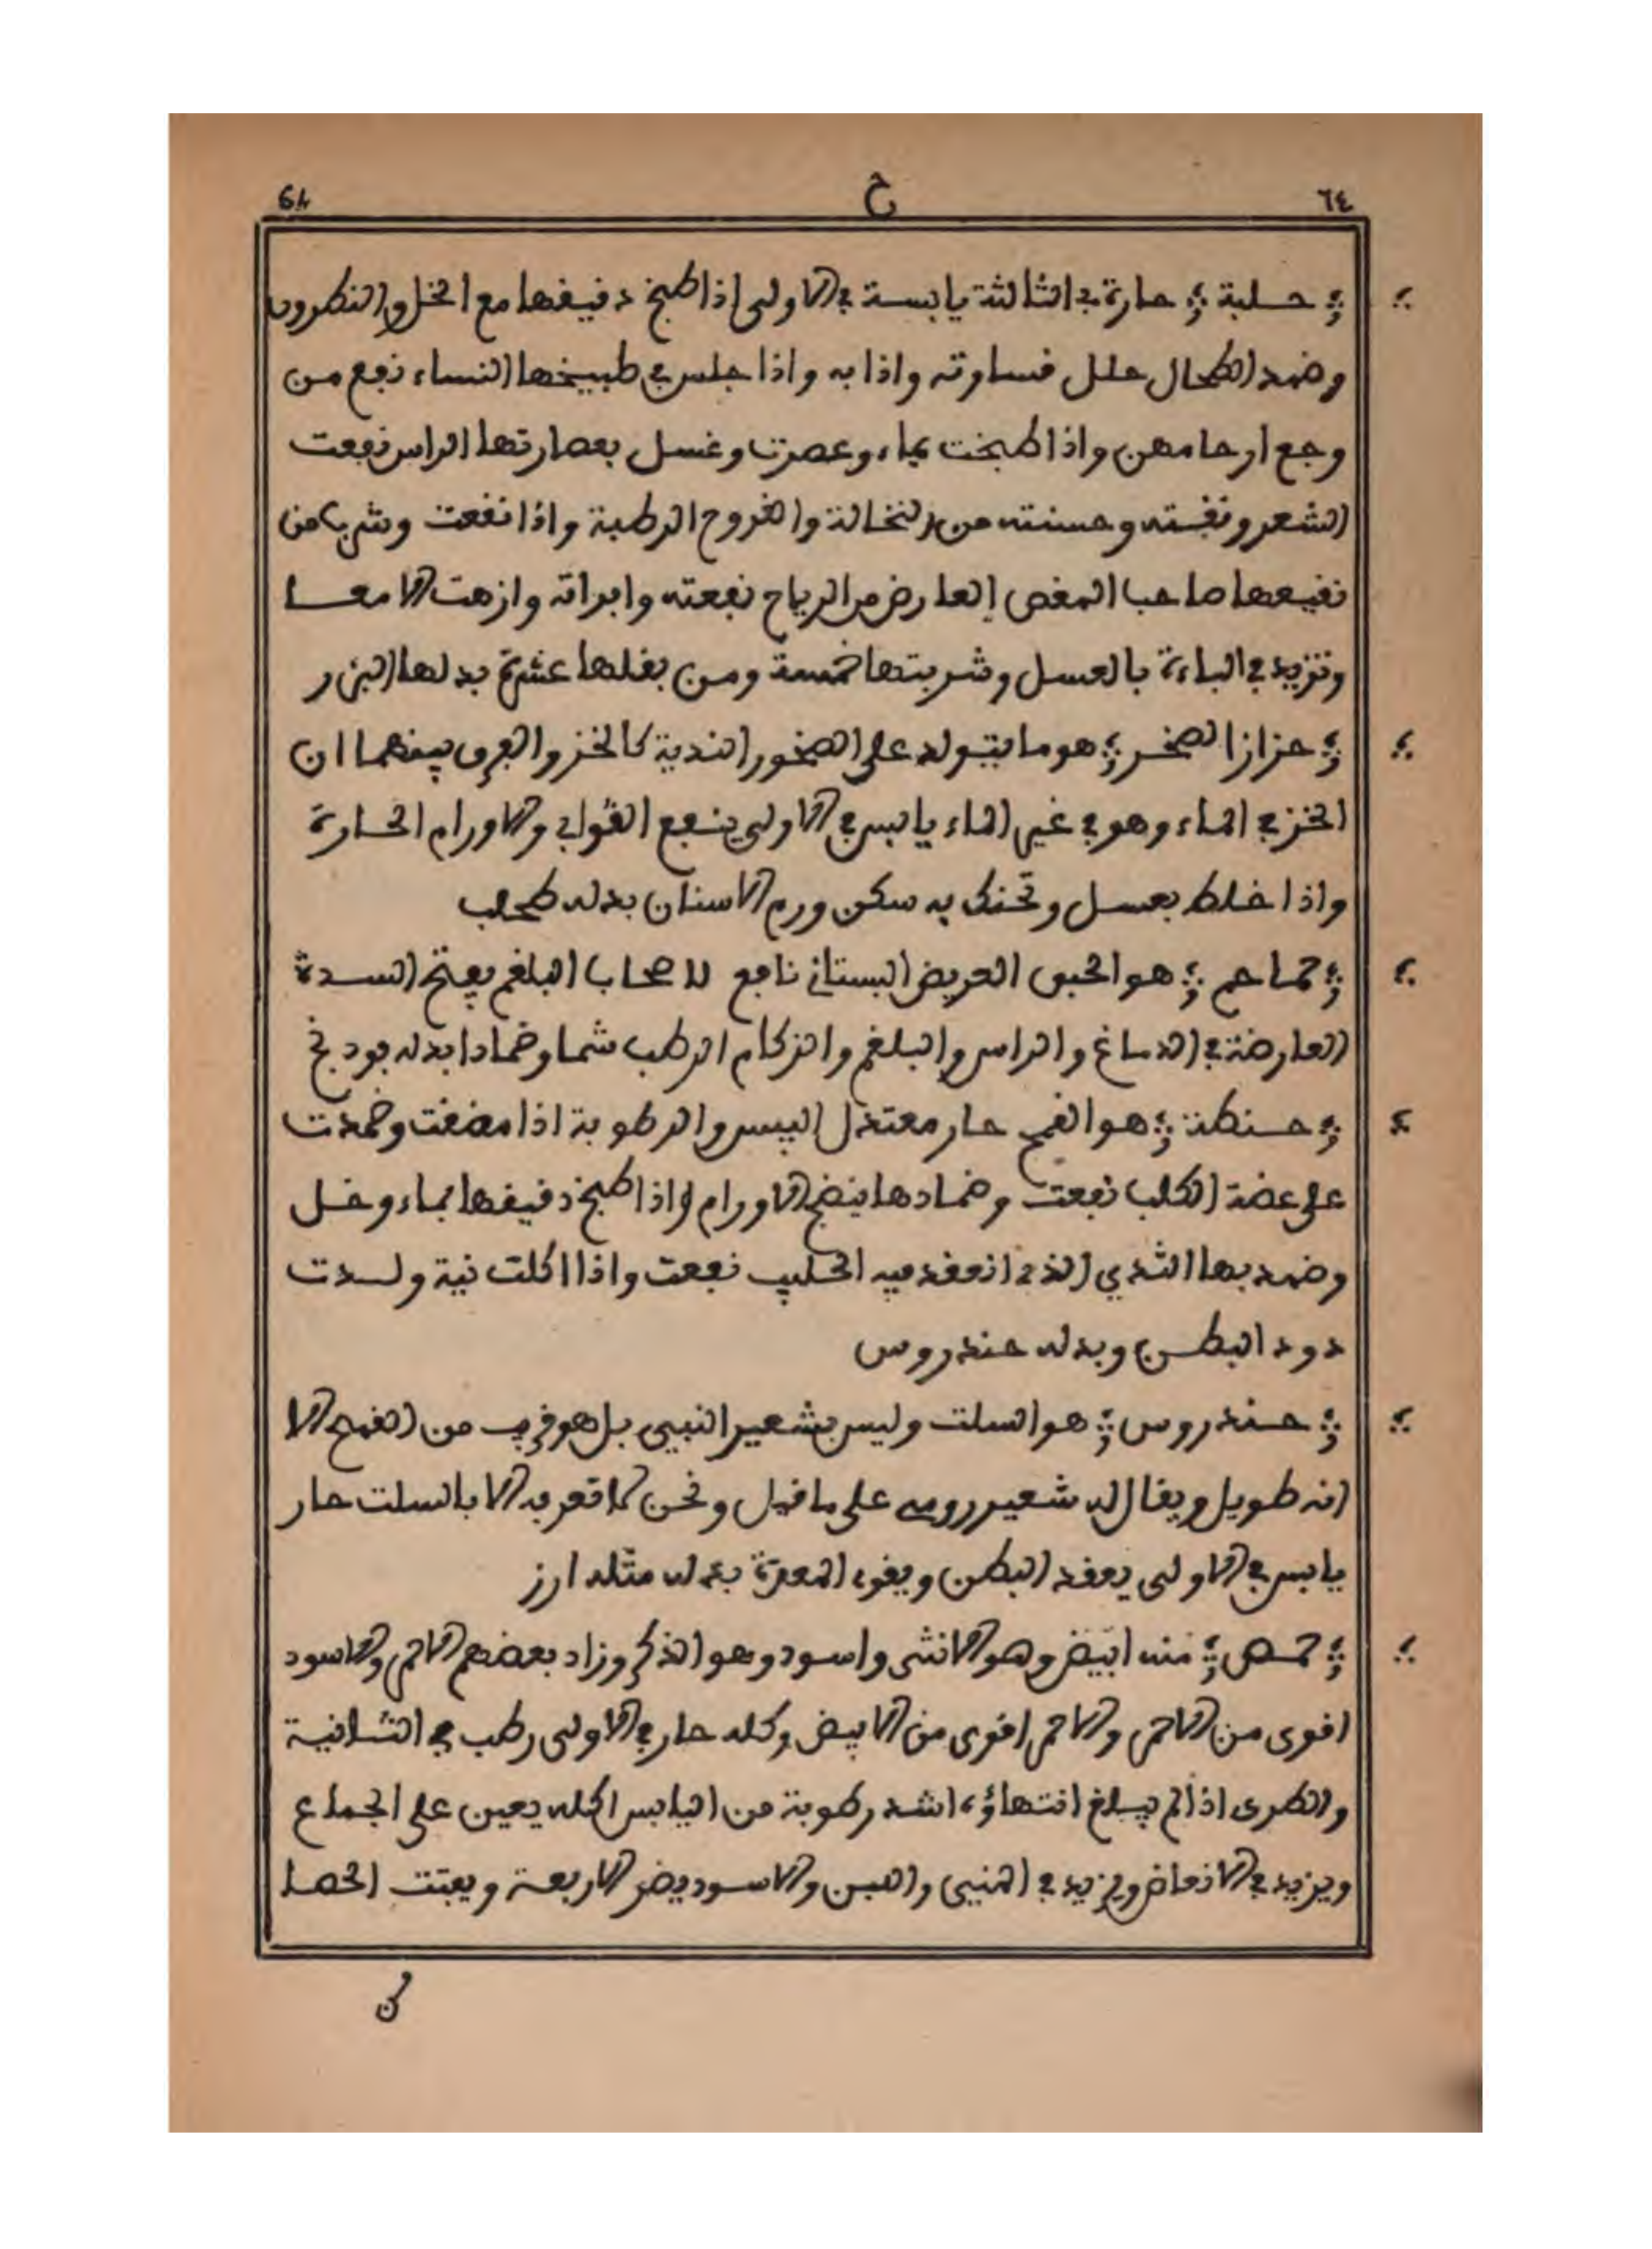 64 ح ٦٤
حلبة حارة في الثالثة يابسة في الاولى اذا طبخ دقيقها مع الخل والنطرون
وضمد الطحال حلل قساوته واذابه واذا جلس في طبيخها النساء نفع من
وجع ارحامهن واذا طبخت بماء وعصرت وغسل بعصارتها الراس نفعت
الشعر ونقته وحسنته من النخالة والقروح الرطبة واذا نقعت وشرب من
نقيعها صاحب المغص العارض من الرياح نفعته وابراته وازهت الامعا
وتزيد في الباءة بالعسل وشربتها خمسة ومن بقلها عشرة بدلها البزر
حزاز الصخر هو ما يتولد على الصخور الندية كالخز والفرق بينهما ان
الخز في الماء وهو في غير الماء يابس في الاولى ينفع القوابي والاورام الحارة
واذا خلط بعسل وتحنك به سكن ورم الاسنان بدله طحلب
حماحم هو الحبق العريض البستاني نافع لاصحاب البلغم يفتح السدة
العارضة في الدماغ والراس والبلغم والزكام الرطب شما وضمادا بدله فودنج
حنطة هو القمح حار معتدل اليبس والرطوبة اذا مضغت وضمدت
على عضة الكلب نفعت وضمادها ينضج الاورام واذا طبخ دقيقها بماء وخل
وضمد بها الثدي الذي انعقد فيه الحليب نفعت واذا اكلت نية ولدت
دود البطن وبدله حندروس
حندروس هو السلت وليس بشعير النبي بل هو قريب من القمح الا
انه طويل ويقال له شعير رومي على ما قيل ونحن لا نعرفه الا بالسلت حار
يابس في الاولى يعقد البطن ويقوي المعدة بدله مثله ارز
حمص منه ابيض وهو الانثى واسود وهو الذكر وزاد بعضهم الاحمر والاسود
اقوى من الاحمر والاحمر اقوى من الابيض وكله حار في الاولى رطب في الثانية
والطرى اذا لم يبلغ انتهاؤه اشد رطوبة من اليابس اكله يعين على الجماع
ويزيد في الانعاظ ويزيد في المني واللبن والاسود يضر الاربعة ويفتت الحصا